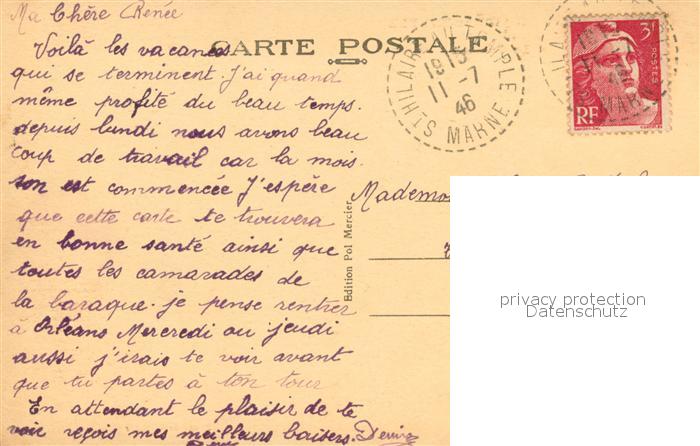 Ma Chère Renée
Voilà les vacances
qui se terminent. J'ai quand
même profité du beau temps.
depuis lundi nous avons beau
coup de travail car la mois-
son est commencée J'espère
que cette carte te trouvera
en bonne santé ainsi que
toutes les camarades de
la baraque. je pense rentrer
à Orléans Mercredi ou jeudi
aussi j'irais te voir avant
que tu partes à ton tour
En attendant le plaisir de te
voir reçois mes meilleurs baisers. Denise
CARTE POSTALE
ST HILAIRE AU TEMPLE
MARNE
11-7
46
3F
POSTES
RF
Edition Pol Mercier
privacy protection
Datenschutz